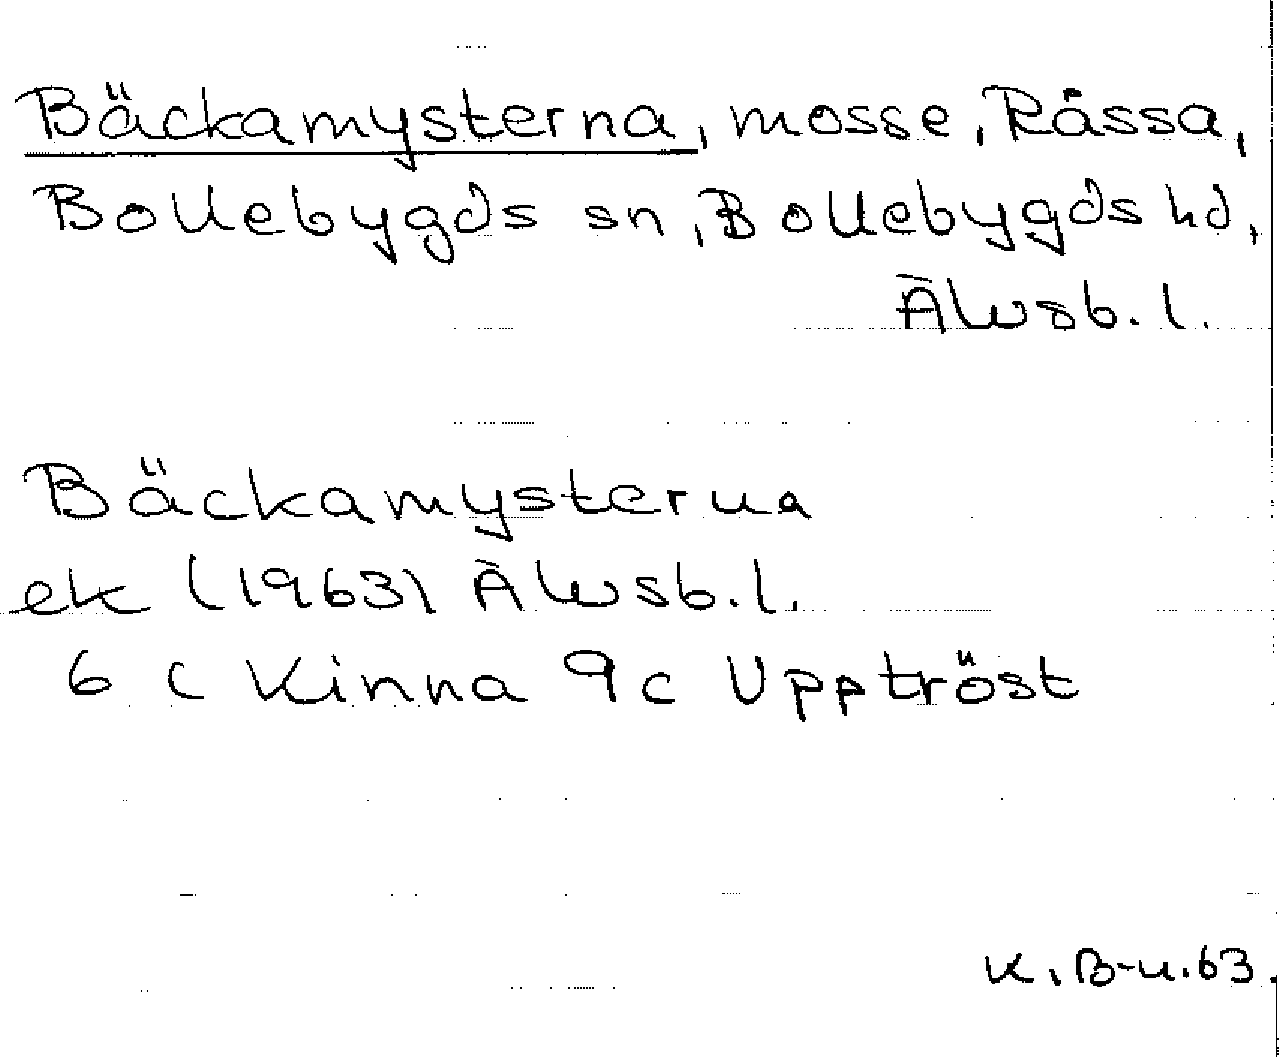 Bäckamysterna, mosse, Råssa,
Bollebygds sn, Bollebygds hd,
Älvsb. l.
Bäckamysterna
ek (1963) Älvsb. l.
6 c Kinna 9c Upptröst
K. B-n. 63.